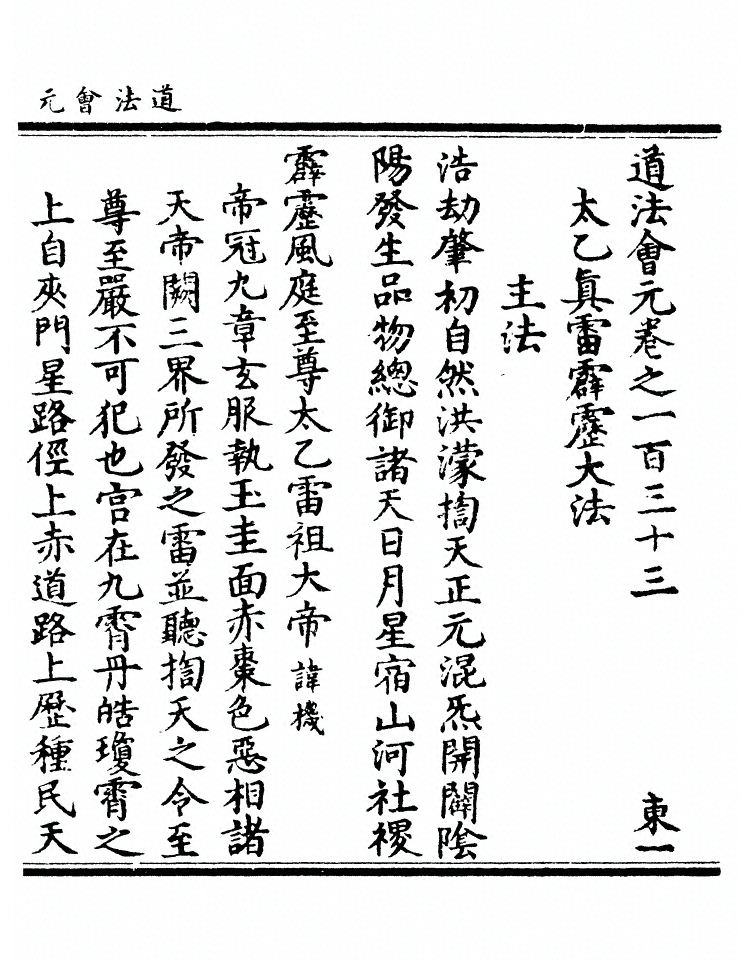 道法會元
道法會元卷之一百三十三 東一
太乙眞雷霹靂大法
主法
浩劫肇初自然洪濛搊天正元混炁開闢陰
陽發生品物總御諸天日月星宿山河社稷
霹靂風庭至尊太乙雷祖大帝諱機
帝冠九章玄服執玉圭面赤棗色惡相諸
天帝闕三界所發之雷並聽搊天之令至
尊至嚴不可犯也宮在九霄丹皓瓊霄之
上自夾門星路徑上赤道路上歷種民天